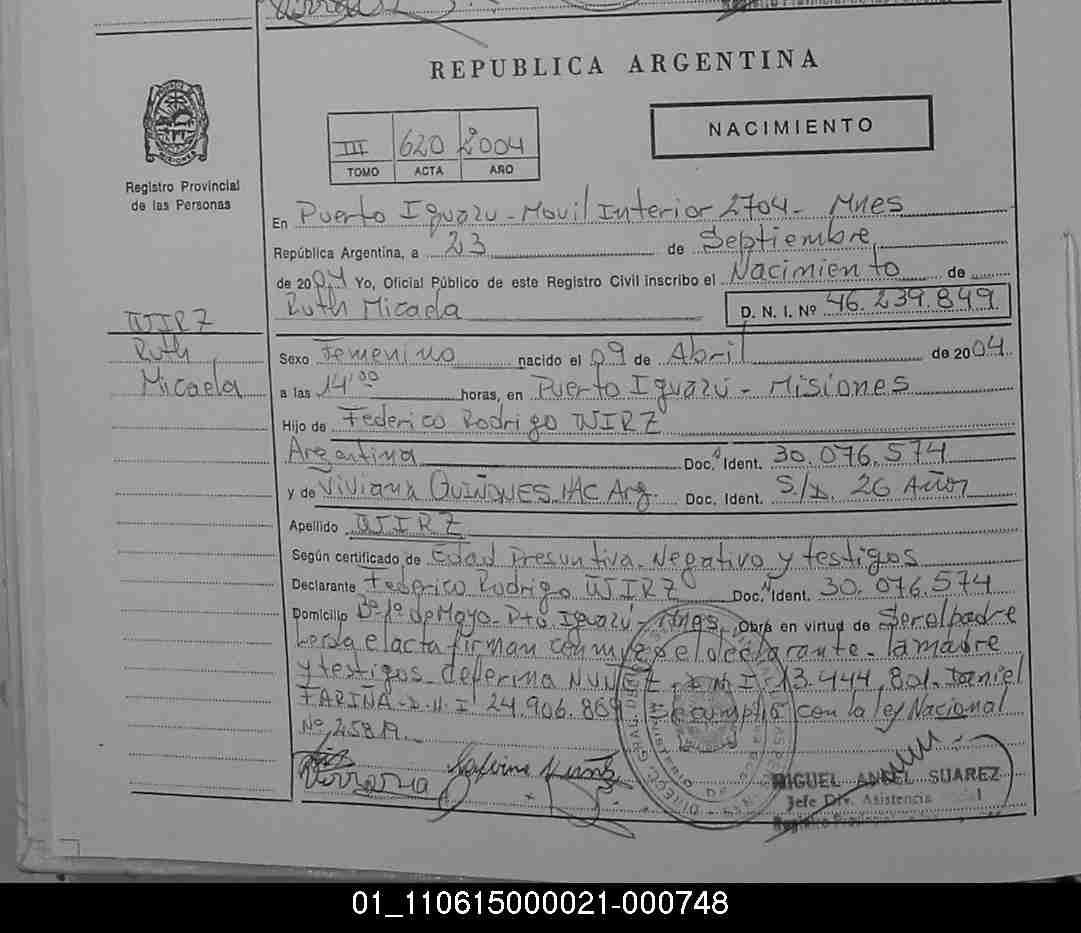 REPUBLICA ARGENTINA
NACIMIENTO
III 620 2004
TOMO ACTA AÑO
Registro Provincial
de las Personas
En Puerto Iguazu - Movil Interior 2704 - Mnes
República Argentina, a 23 de Septiembre
de 2004 Yo, Oficial Público de este Registro Civil inscribo el Nacimiento de
Ruth Micaela D. N. I. Nº 46.239.849
WIRZ
Ruth
Micaela
Sexo Femenino nacido el 09 de Abril de 2004
a las 14'00 horas, en Puerto Iguazú - Misiones
Hijo de Federico Rodrigo WIRZ
Argentina Doc. Ident. 30.076.574
y de Viviana QUIÑONES NAC Arg. Doc. Ident. S/D. 26 Años
Apellido WIRZ
Según certificado de Edad Presuntiva. Negativo y testigos
Declarante Federico Rodrigo WIRZ Doc. Ident. 30.076.574
Domicilio Bº 1º de Mayo. Pto Iguazú - Mnes. Obra en virtud de Ser el padre
Leida el acta firman conmigo el declarante - la madre
y testigos NUÑEZ D.N.I. 13.444.801 - Daniel
FARIÑA - D.N.I. 24.906.869 Se cumplió con la ley Nacional
Nº 25819.
MIGUEL ANGEL SUAREZ
Jefe Div. Asistencia
01_110615000021-000748